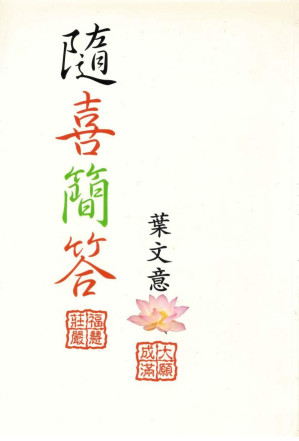 隨喜簡答
葉文意
福慧
莊嚴
大願
成滿